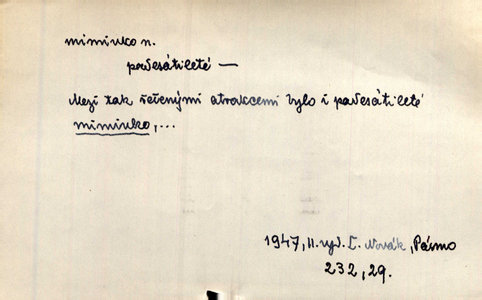 miminko n.
padesátileté —
Mezi tak řečenými atrakcemi bylo i padesátileté
miminko,...
1947, II. vyd. L. Novák, Pásmo
232, 29.